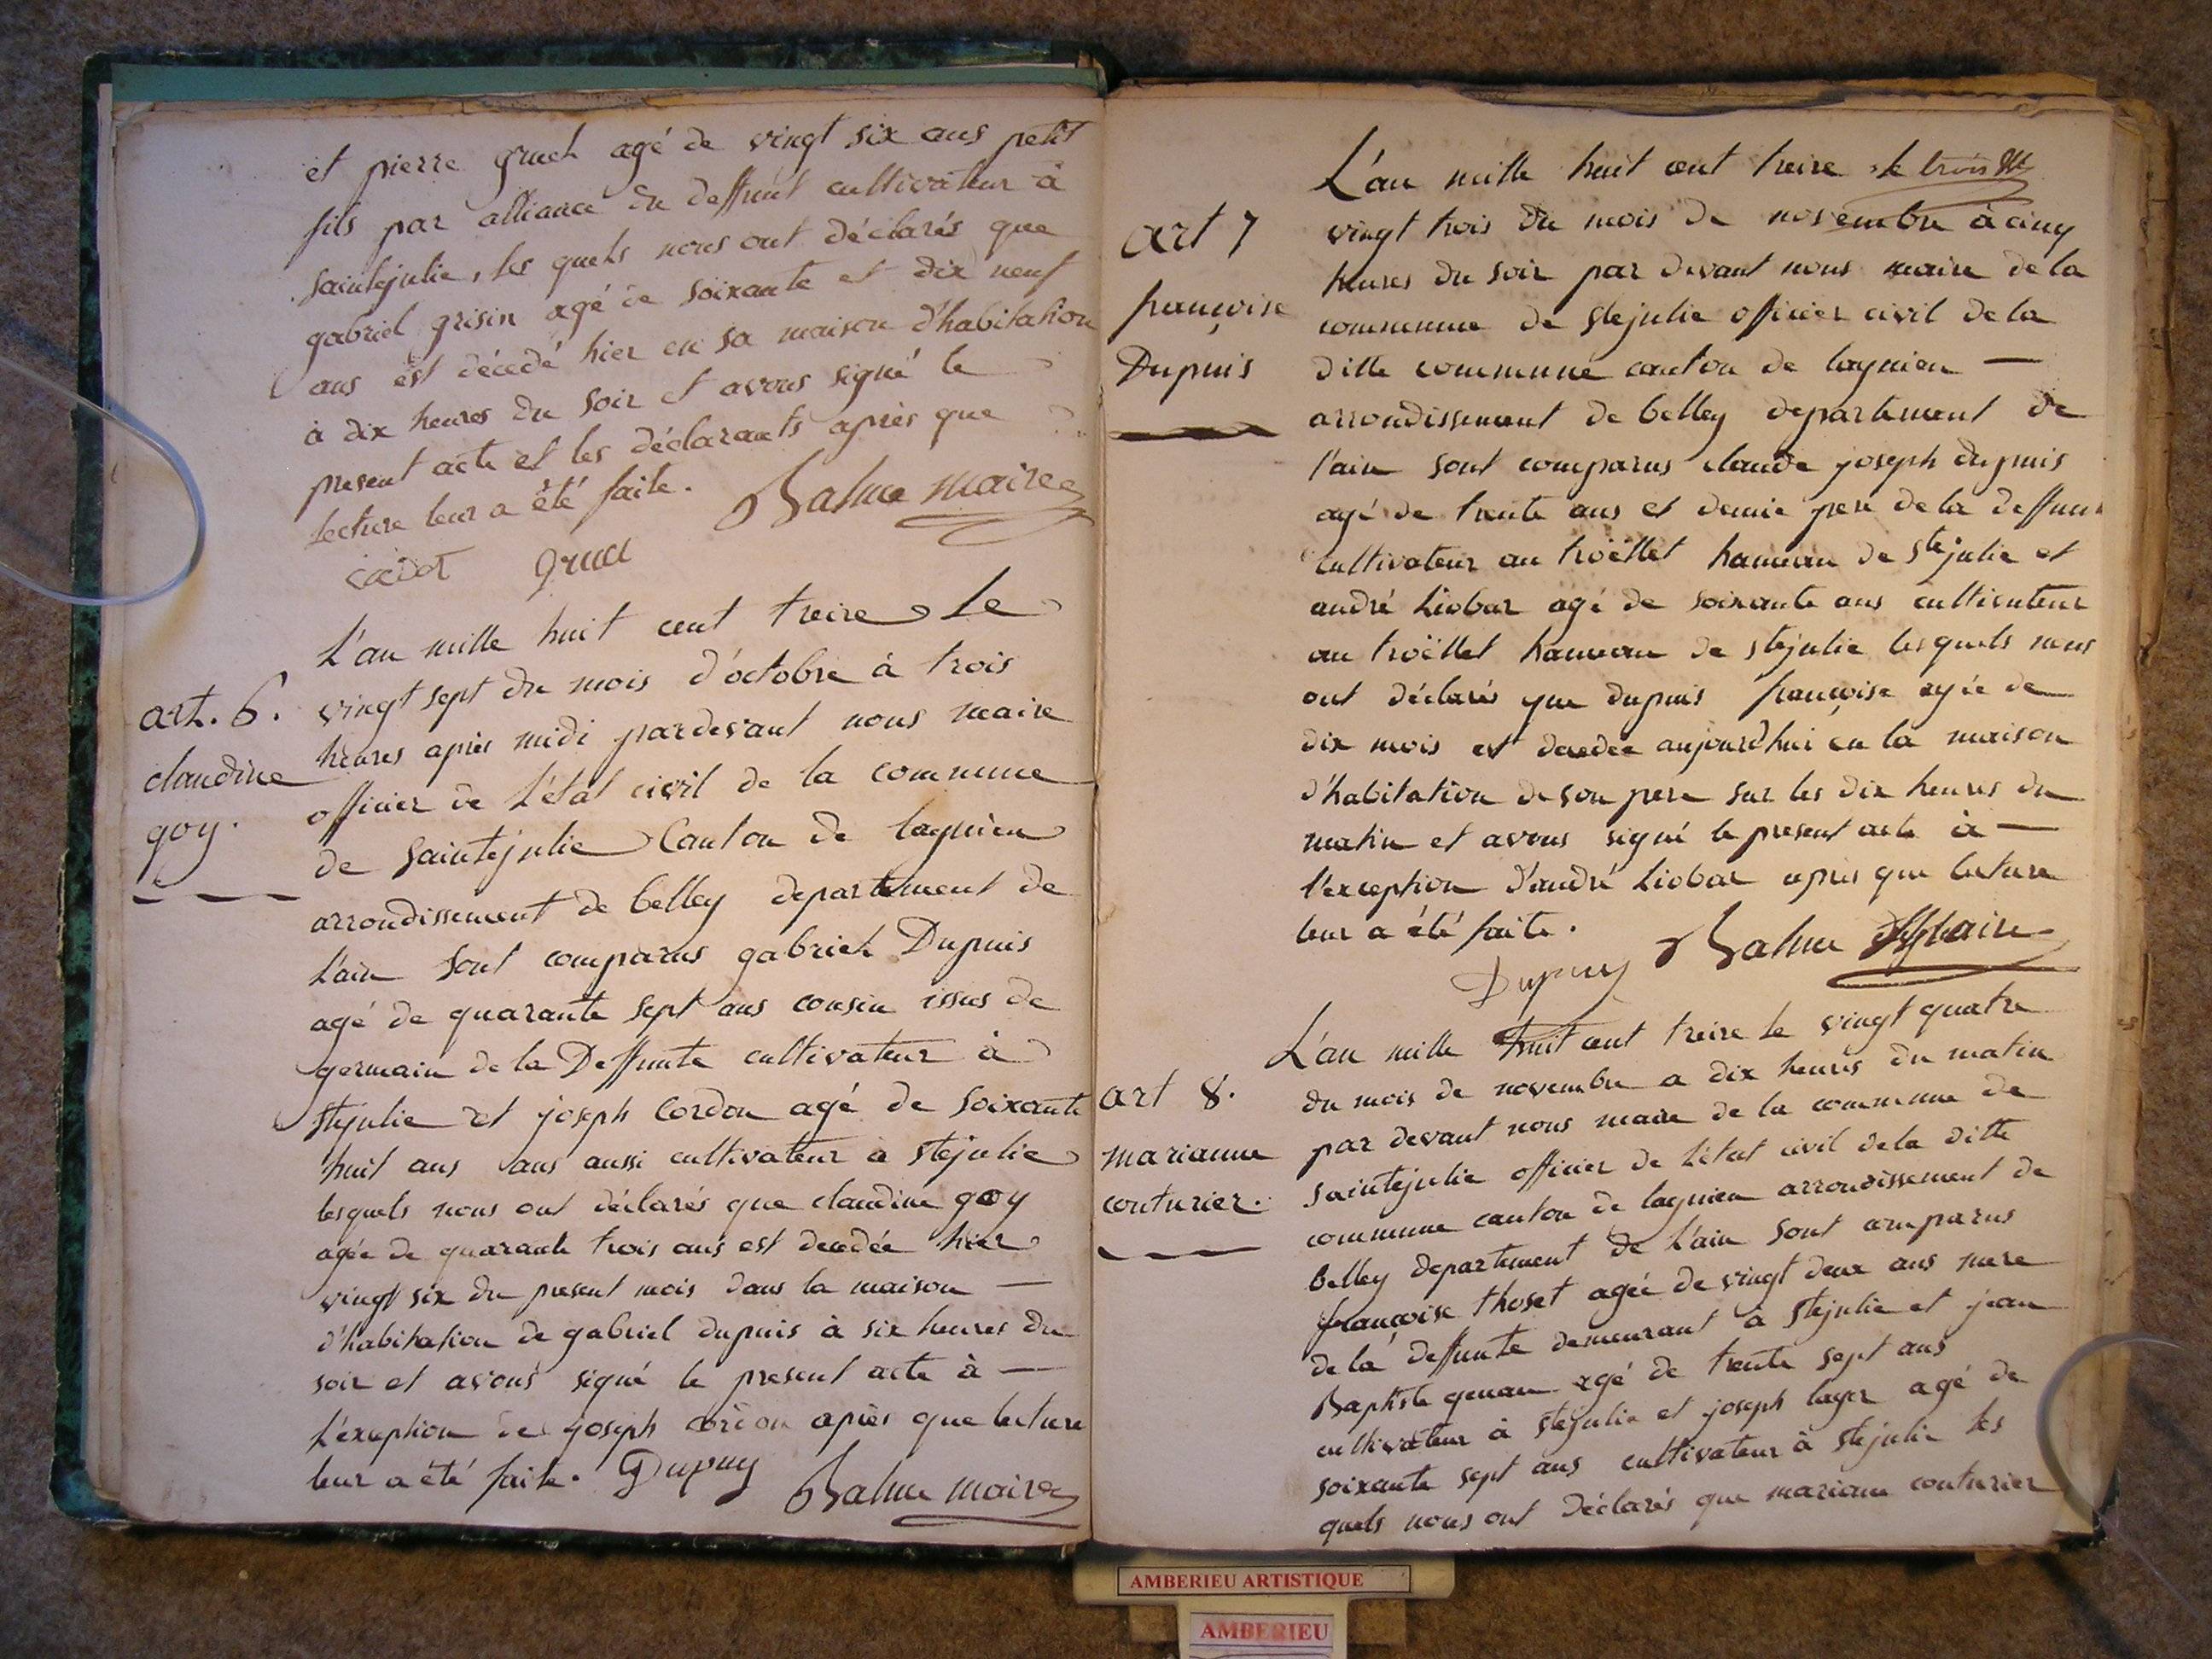 et pierre gruel agé de vingt six ans petit
fils par alliance du deffunt cultivateur à
saintejulie, les quels nous ont déclarés que
gabriel grisin agé de soixante et dix neuf
ans est décedé hier en sa maison d'habitation
à dix heures du soir et avons signé le
present acte et les déclarants après que
lecture leur a été faite. Balme maire
gruel
L'an mille huit cent treize Le
art. 6. vingt sept du mois d'octobre à trois
claudine heures après midi pardevant nous maire
goy. officier de l'état civil de la commune
de saintejulie Canton de lagnieu
arrondissement de belley departement de
l'ain sont comparus gabriel Dupuis
agé de quarante sept ans cousin issus de
germain de la Deffunte cultivateur à
stejulie et joseph Cordon agé de soixante
huit ans ans aussi cultivateur à stejulie
lesquels nous ont déclarés que claudine goy
agée de quarante trois ans est decedée hier
vingt six du present mois dans la maison —
d'habitation de gabriel dupuis à six heures du
soir et avons signé le present acte à —
l'exeption de joseph cordon après que lecture
leur a été faite. Dupuy Balme maire
L'an mille huit cent treize le trois
art 7
françoise
Dupuis
vingt trois du mois de novembre à cinq
heures du soir par devant nous maire de la
commune de stejulie officier civil de la
ditte commune canton de lagnieu —
arrondissement de belley departement de
l'ain sont comparus claude joseph dupuis
agé de trente ans et demie pere de la deffun
cultivateur au troëllet hameau de stejulie et
andré Liobar agé de soixante ans cultivateur
au troëllet hameau de stejulie lesquels nous
ont déclarés que dupuis françoise agée de
dix mois est decedée aujourd'hui en la maison
d'habitation de son pere sur les dix heures du
matin et avons signé le present acte à —
l'exception d'andré Liobar après que lecture
leur a été faite.
Dupuy Balme Maire
L'an mille huit cent treize le vingt quatre
art 8.
marianne
couturier.
du mois de novembre a dix heures du matin
par devant nous maire de la commune de
saintejulie officier de l'état civil de la ditte
commune canton de lagnieu arrondissement de
belley departement de l'ain sont comparus
françoise thoset agée de vingt deux ans mere
de la deffunte demeurant à stejulie et jean
Baptiste genan agé de trente sept ans
cultivateur à stejulie et joseph layer agé de
soixante sept ans cultivateur à stejulie les
quels nous ont déclarés que mariane couturier
AMBERIEU ARTISTIQUE
AMBERIEU